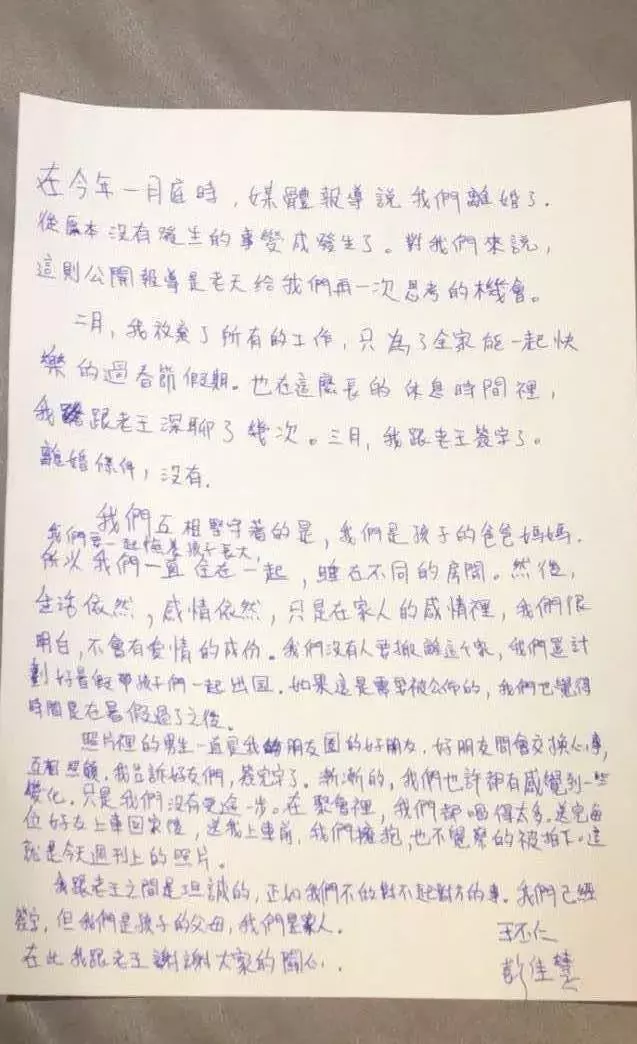 在今年一月底時，媒體報導說我們離婚了.
從原本沒有發生的事變成發生了。對我們來說，
這則公開報導是老天給我們再一次思考的機會。
二月，我放棄了所有的工作，只為了全家能一起快
樂的過春節假期。也在這麼長的休息時間裡，
我跟老王深聊了幾次。三月，我跟老王簽字了。
離婚條件，沒有.
我們互相堅守著的是，我們是孩子的爸爸媽媽.
我們要一起陪養孩子長大,
所以我們一直住在一起，睡在不同的房間。然後，
生活依然，感情依然，只是在家人的感情裡，我們很
明白，不會有愛情的成份。我們沒有人要搬離這个家，我們還計
劃好暑假帶孩子們一起出国. 如果這是需要被公佈的，我們也覺得
時間是在暑假過了之後。
照片裡的男生一直是我朋友圈的好朋友，好朋友間會交換心事,
互相照顧，我告訴好友們，簽完字了。漸漸的，我們也許都有感覺到一些
變化. 只是我們沒有更進一步。在聚會裡，我們都喝得太多. 送完每
位好友上車回家後，送我上車前，我們擁抱，也不覺察的被拍下. 這
就是今天週刊上的照片。
我跟老王之間是坦誠的，正如我們不做對不起對方的事. 我們已經
簽字，但我們是孩子的父母，我們是家人.
王丕仁
在此我跟老王謝謝大家的關心..
彭佳慧